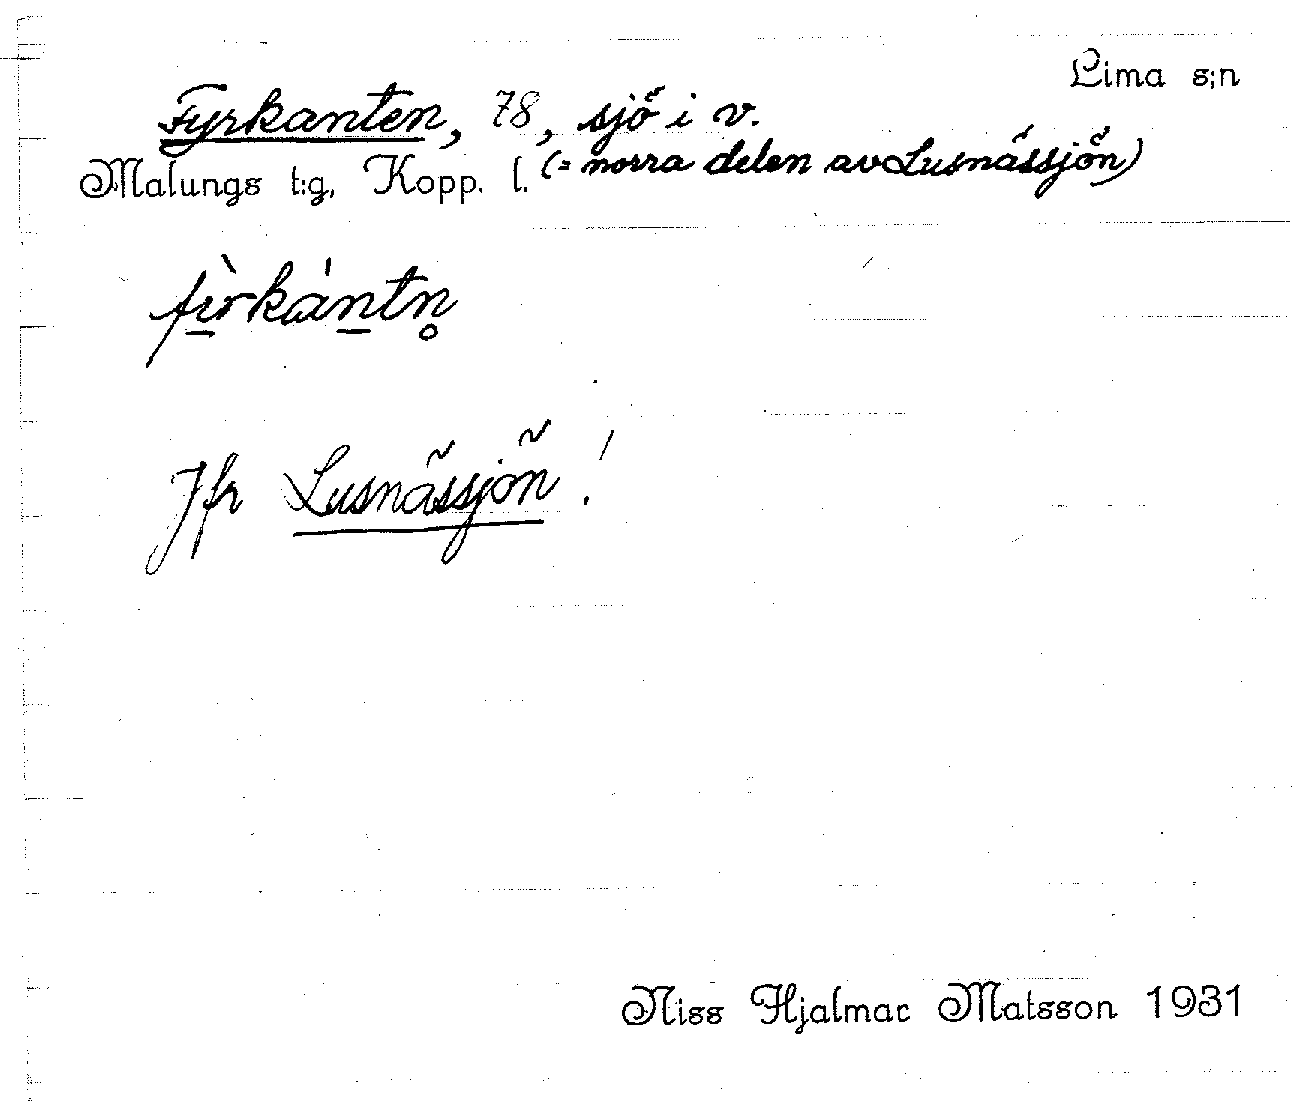 Lima s:n
Fyrkanten, 78, sjö i v.
Malungs t:g, Kopp. l. (= norra delen av Lusnässjön)
fı̀rkántn̥
Jfr Lusnässjön!
Niss Hjalmar Matsson 1931